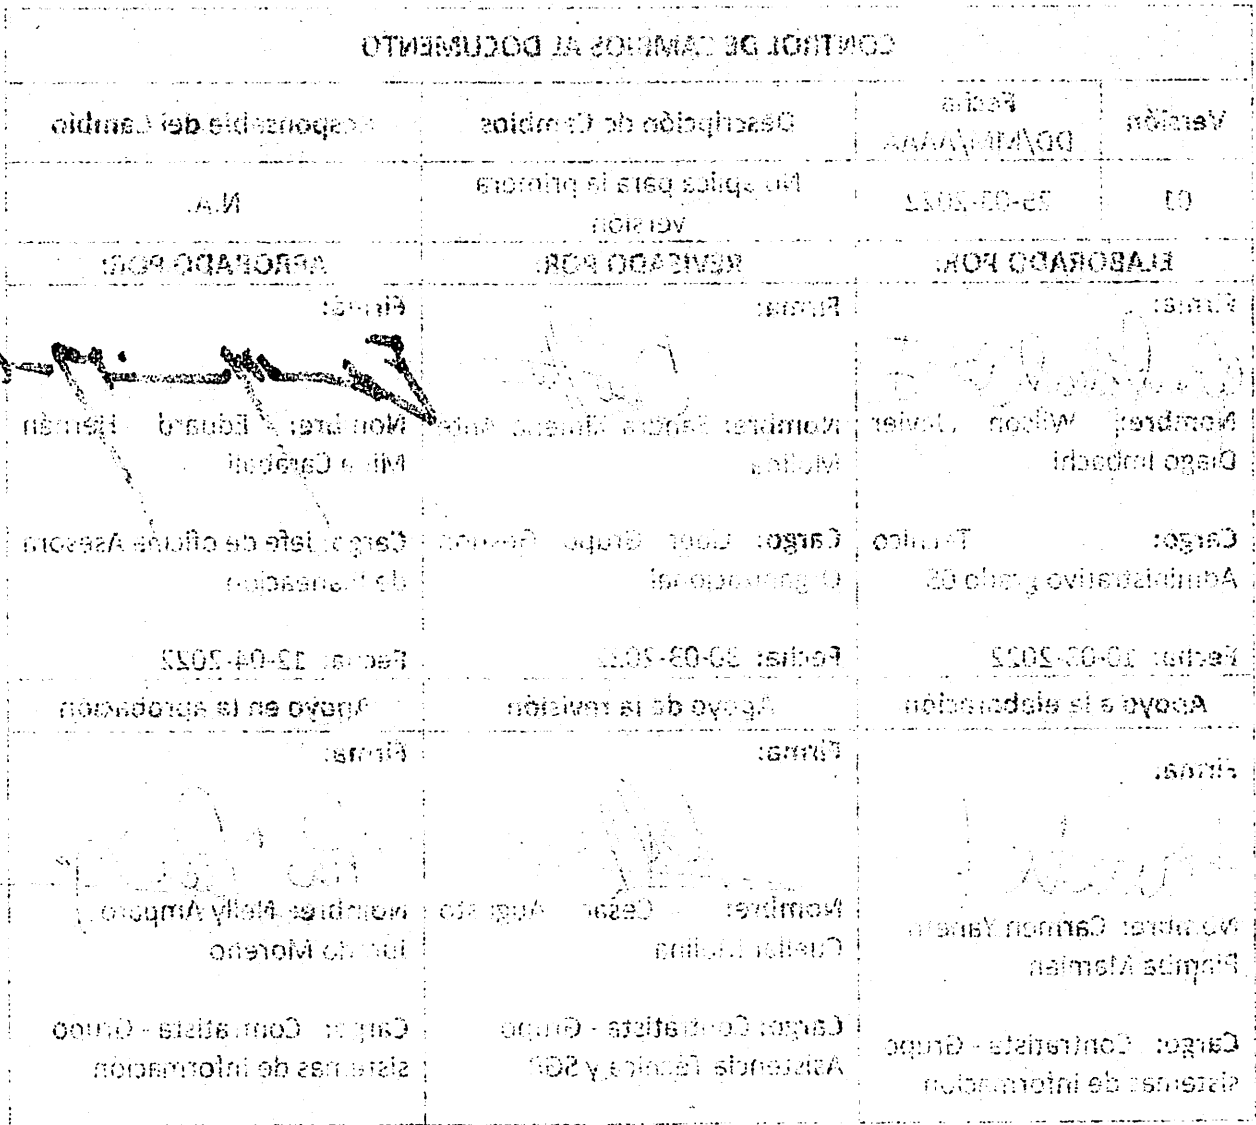 CONTROL DE CAMBIOS AL DOCUMENTO
Versión
Fecha
DD/MM/AAAA
Descripción de Cambios
Responsable del Cambio
01
25-03-2022
No aplica para la primera
versión
N.A.
ELABORADO POR:
REVISADO POR:
APROBADO POR:
Firma:
Nombre: Wilson Javier
Diago Imbachi
Cargo: Técnico
Administrativo grado 05
Fecha: 2022
Firma:
Nombre: Sandra Ximena
Molina
Cargo: Líder Grupo Gestión
Organizacional
Fecha: 30-03-2022
Firma:
Nombre: Eduard Hernán
Carabalí
Cargo: Jefe de oficina Asesora
de Planeación
Fecha: 12-04-2022
Apoyo a la elaboración
Apoyo de la revisión
Apoyo en la aprobación
Firma:
Nombre: Carmen Yaneth
Cargo: Contratista - Grupo
sistemas de información
Firma:
Nombre: Cesar Augusto
Cuellar Molina
Cargo: Contratista - Grupo
Asistencia Técnica y SGR
Firma:
Nombre: Nelly Amparo
Moreno
Cargo: Contratista - Grupo
sistemas de información